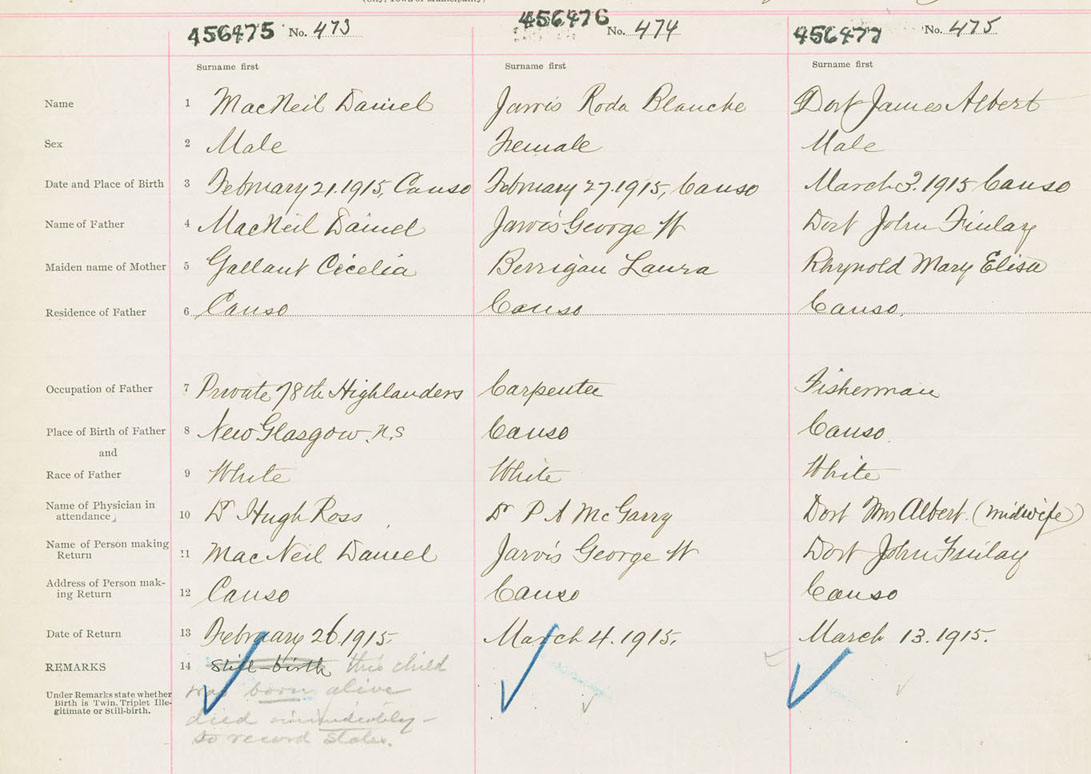 (City, Town or Municipality)
456475 No. 473 456476 No. 474 456477 No. 475
Surname first Surname first Surname first
Name 1 MacNeil Daniel Jarvis Roda Blanche Dort James Albert
Sex 2 Male Female Male
Date and Place of Birth 3 February 21. 1915, Canso February 27. 1915, Canso March 3. 1915 Canso
Name of Father 4 MacNeil Daniel Jarvis George W Dort John Finlay
Maiden name of Mother 5 Gallant Cicelia Berrigan Laura Rhynold Mary Elisa
Residence of Father 6 Canso Canso Canso.
Occupation of Father 7 Private 78th Highlanders Carpenter Fisherman
Place of Birth of Father 8 New Glasgow. N.S Canso Canso.
and
Race of Father 9 White White White
Name of Physician in
attendance 10 Dr Hugh Ross Dr P A McGarry Dort Mrs Albert (midwife)
Name of Person making
Return 11 MacNeil Daniel Jarvis George W Dort John Finlay
Address of Person mak-
ing Return 12 Canso Canso Canso
Date of Return 13 February 26. 1915 March 4. 1915. March 13. 1915.
REMARKS 14 Still-birth this child
was born alive
died immediately -
so record states.
Under Remarks state whether
Birth is Twin. Triplet Ille-
gitimate or Still-birth.